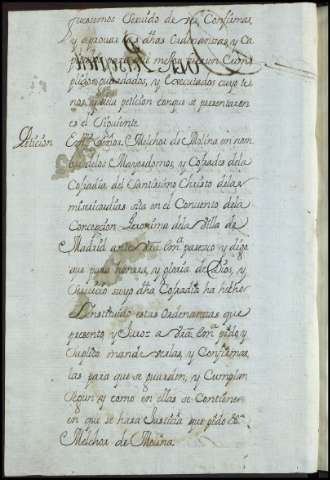 fuesemos servido de ver, Confirmar,
y aprouar las dhas Ordenanzas, y Ca
pitulos
plidos, guardados, y Executados cuyo te
nor, y dela peticion conque se presentaron
es el siguiente
Peticion
Em.mo Señor. Melchor de Molina en nom
bre delos Mayordomos, y Cofrades dela
Cofradia del Santissimo Christo delas
misericordias sita en el Conuento dela
Concepcion Geronima dela Villa de
Madrid ante Vra Em.a parezco y digo
que para honrra, y gloria de Dios, y
seruicio suyo dha Cofradia ha hecho
e Constituido estas Ordenanzas que
presento y Juro: a Vra Em.a pido y
suplico mande verlas, y Confirmar
las para que se guarden, y Cumplan
segun y como en ellas se Contiene
en que se hara Justicia que pido &a
Melchor de Molina